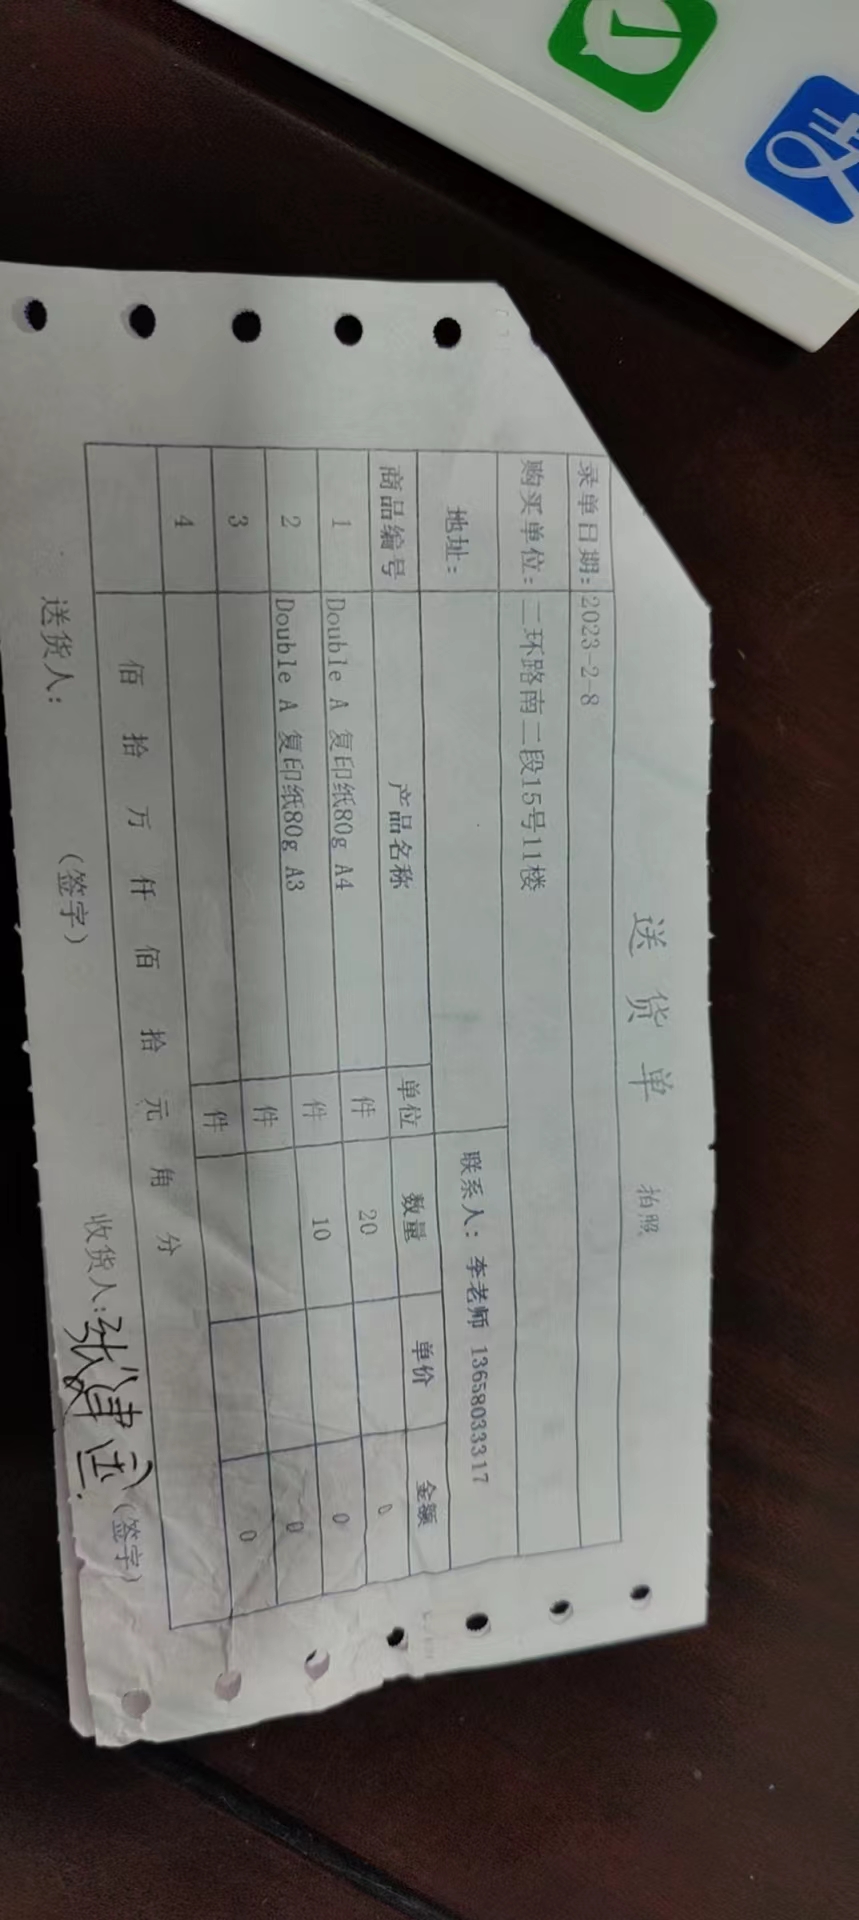 送货单 拍照
录单日期: 2023-2-8
购买单位: 二环路南二段15号11楼
地址: 联系人: 李老师 13658033317
商品编号 产品名称 单位 数量 单价 金额
1 Double A 复印纸80g A4 件 20 0
2 Double A 复印纸80g A3 件 10 0
3 件 0
4 件 0
佰 拾 万 仟 佰 拾 元 角 分
送货人: (签字) 收货人: (签字)
支